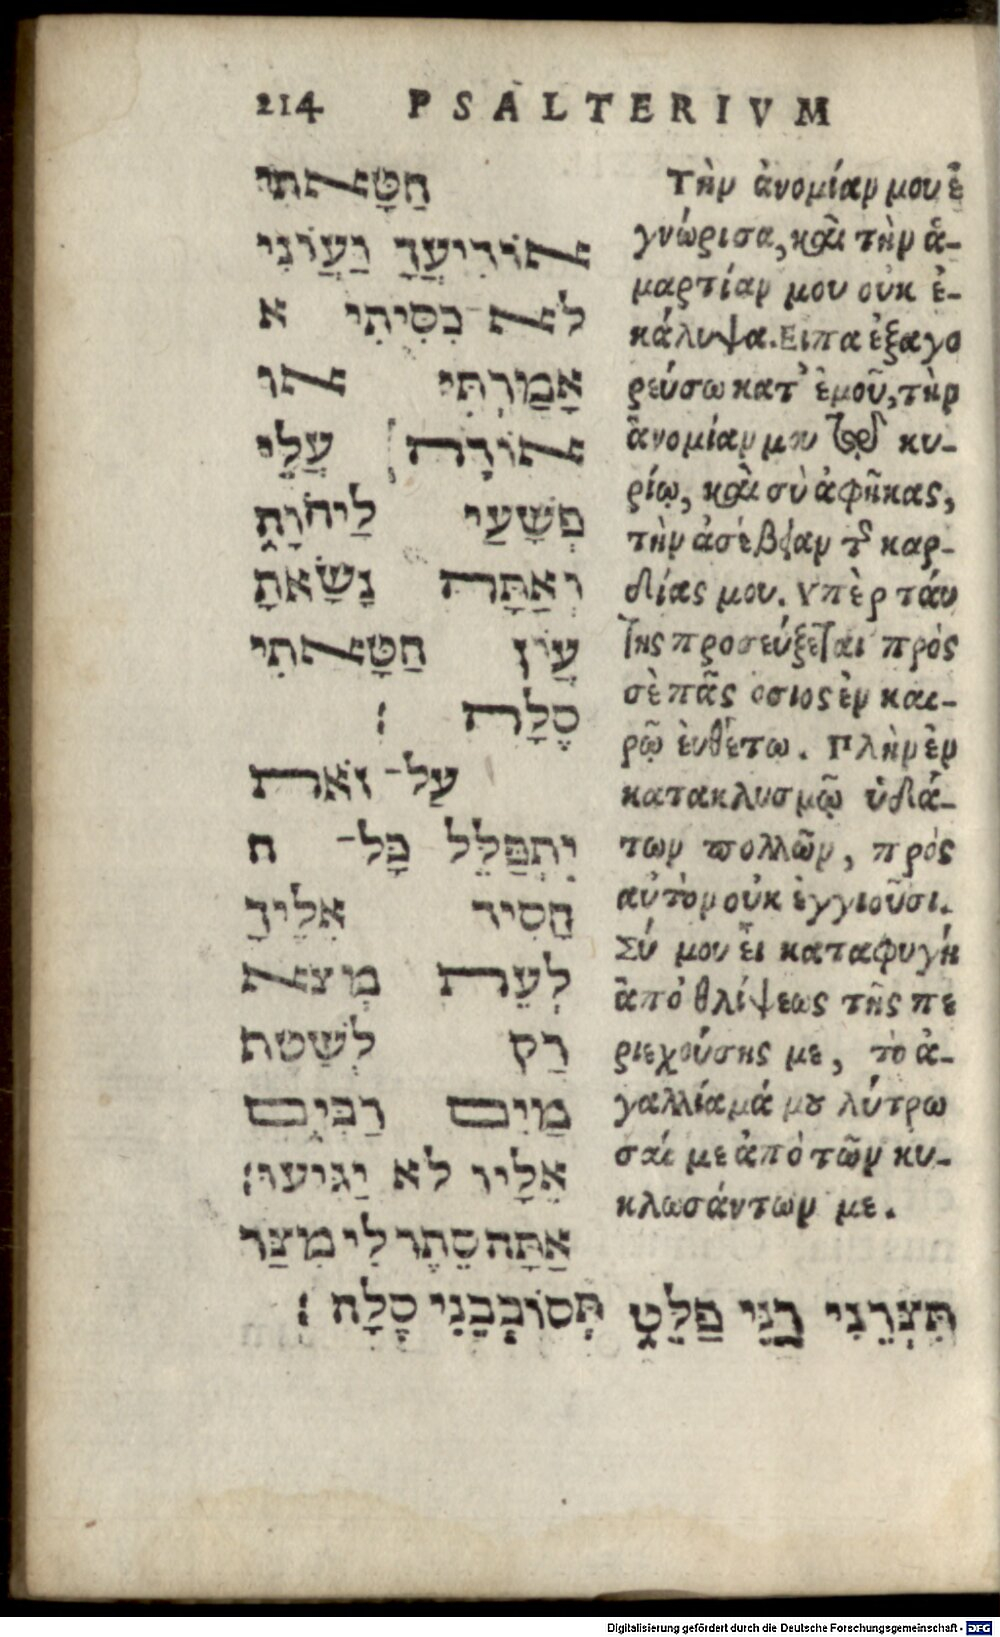 214 PSALTERIVM
חַטָּאתִי
אוֹדִיעֲךָ וַעֲוֹנִי
לֹא־כִסִּיתִי א
אָמַרְתִּי או
אוֹדֶה עֲלֵי
פְשָׁעַי לַיהוָֹה
וְאַתָּה נָשָׂאתָ
עֲוֹן חַטָּאתִי
סֶלָה׃
עַל־זֹאת
יִתְפַּלֵּל כָּל־ ח
חָסִיד אֵלֶיךָ
לְעֵת מְצֹא
רַק לְשֵׁטֶת
מַיִם רַבִּים
אֵלָיו לֹא יַגִּיעוּ׃
אַתָּה סֵתֶר לִי מִצַּר
תִּצְּרֵנִי רָנֵּי פַלֵּט תְּסוֹבְבֵנִי סֶלָה׃
Τὴν ἀνομίαν μου ἐ
γνώρισα, καὶ τὴν ἁ-
μαρτίαν μου οὐκ ἐ-
κάλυψα. Ειπα ἐξαγο
ρεύσω κατ' ἐμοῦ, τὴν
ἀνομίαν μου τῷ κυ-
ρίῳ, καὶ σὺ ἀφῆκας,
τὴν ἀσέβειαν τῆς καρ-
δίας μου. Υπὲρ τάυ
της προσεύξεται πρὸς
σὲ πᾶς οσιος ἐν και-
ρῷ ἐυθέτω. Πλὴν ἐν
κατακλυσμῷ ὑδά-
των πολλῶν, πρὸς
αὐτὸν οὐκ ἐγγιοῦσι.
Σύ μου εἶ καταφυγή
ἀπὸ θλίψεως τῆς πε
ριεχούσης με, τὸ ἀ-
γαλλίαμά μου λύτρω
σαί με ἀπὸ τῶν κυ-
κλωσάντων με.
Digitalisierung gefördert durch die Deutsche Forschungsgemeinschaft - DFG